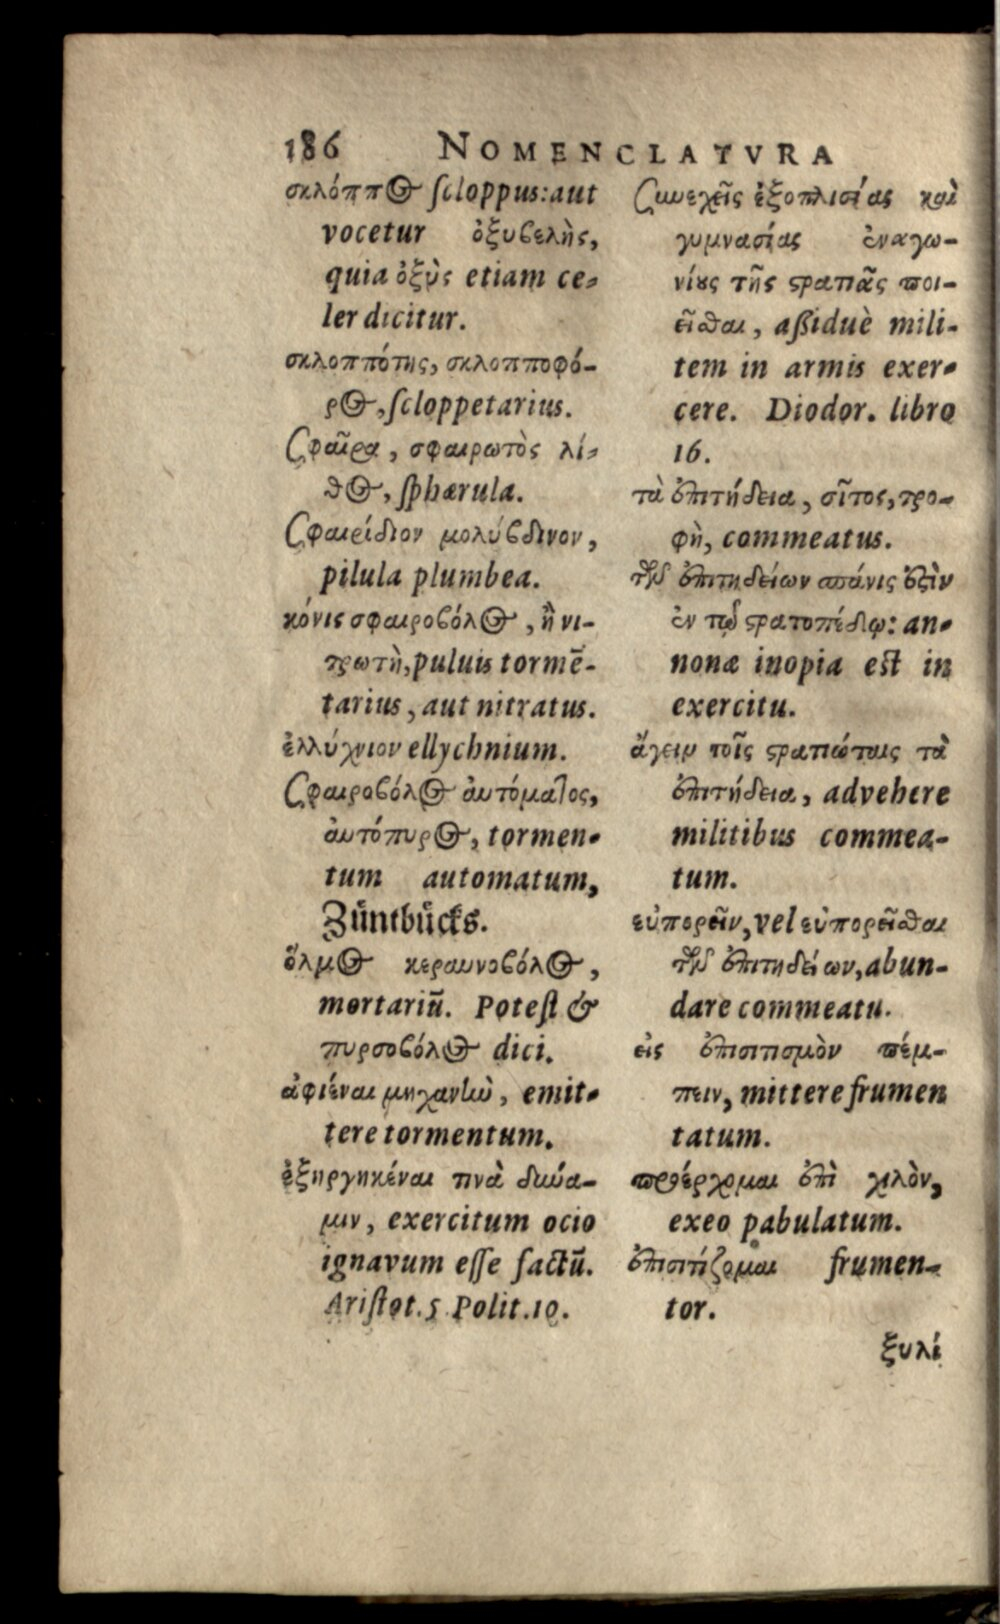 186 NOMENCLATVRA
σκλόππος ſcloppus: aut
vocetur ὀξυβελὴς,
quia ὀξὺς etiam ce-
ler dicitur.
σκλοππότης, σκλοπποφό-
ρος, ſcloppetarius.
Σφαῖρα, σφαιρωτὸς λί-
θος, ſphærula.
Σφαιρίδιον μολύβδινον,
pilula plumbea.
κόνις σφαιροβόλος, ἢ νι-
τρωτὴ, puluis tormē-
tarius, aut nitratus.
ἐλλύχνιον ellychnium.
Σφαιροβόλος αὐτόματος,
αὐτόπυρος, tormen-
tum automatum,
Zůntbůcks.
ὅλμος κεραυνοβόλος,
mortariū. Poteſt &
πυρσοβόλος dici.
ἀφιέναι μηχανὴν, emit-
tere tormentum.
ἐξηργηκέναι τινὰ δύνα-
μιν, exercitum ocio
ignavum eſſe factū.
Ariſtot. 5 Polit. 10.
Συνεχεῖς ἐξοπλισίας καὶ
γυμνασίας ἐναγω-
νίους τῆς στρατιᾶς ποι-
εῖσθαι, aßiduè mili-
tem in armis exer-
cere. Diodor. libro
16.
τὰ ἐπιτήδεια, σῖτος, τρο-
φὴ, commeatus.
τῶν ἐπιτηδείων σπάνις ἐστὶν
ἐν τῷ στρατοπέδῳ: an-
nonæ inopia est in
exercitu.
ἄγειν τοῖς στρατιώταις τὰ
ἐπιτήδεια, advehere
militibus commea-
tum.
εὐπορεῖν, vel εὐπορεῖσθαι
τῶν ἐπιτηδείων, abun-
dare commeatu.
εἰς ἐπισιτισμὸν πέμ-
πειν, mittere frumen
tatum.
προέρχομαι ἐπὶ χιλὸν,
exeo pabulatum.
ἐπισιτίζομαι frumen-
tor.
ξυλί